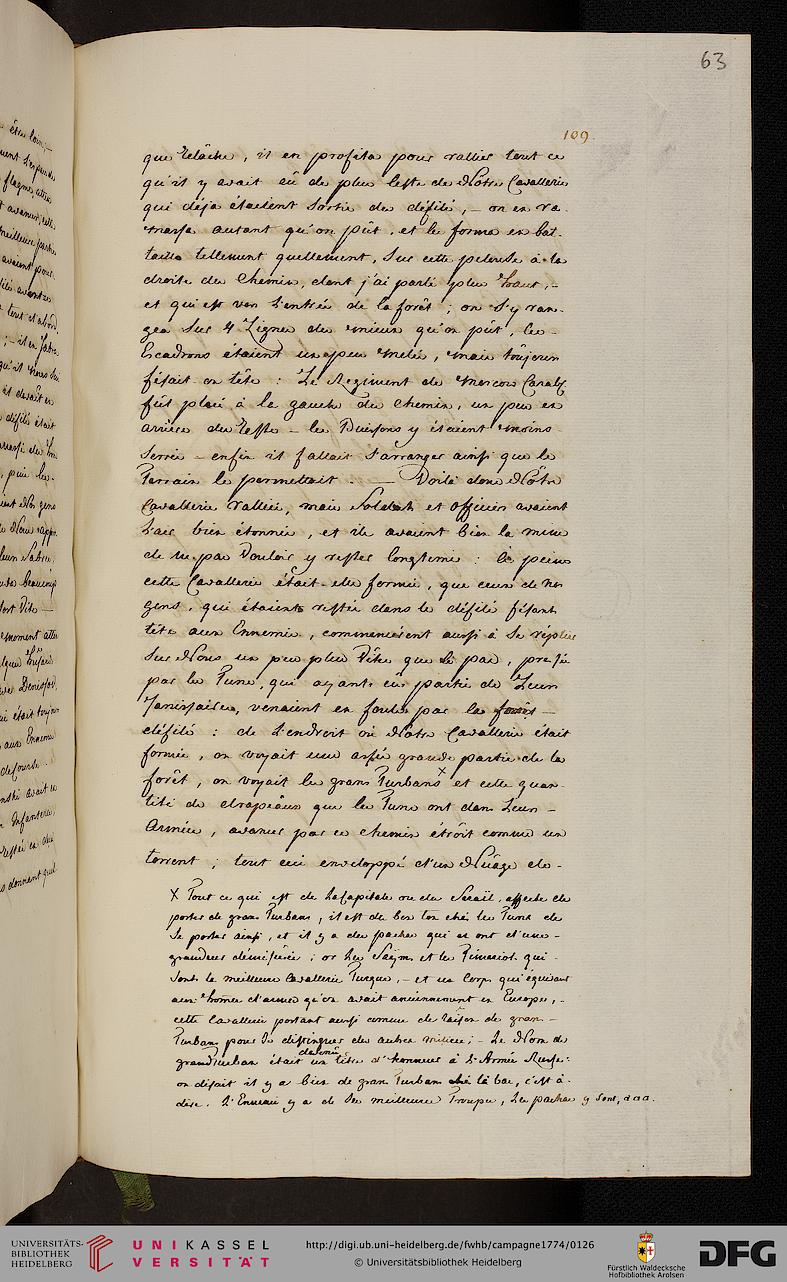 63
109.
que relâche, il en profita pour rallier tout ce
qu'il y avait eû de plus leste de Nôtre Cavallerie
qui déja étaient sortie du défilé, – on en ra-
massa autant qu'on pût, et le forma en bat-
taille tellement quellement, sur cette pelouse à la
droite du Chemin, dont j'ai parlé plus haut, –
et qui est vers l'entrée de la forêt ; on s'y ran-
gea sur 4 Lignes du mieux qu'on pût, les –
Escadrons étaient un peu melés, mais toûjours
fésait-on tête : Le Regiment de Moscou Caralf.
fût placé à la gauche du Chemin, un peu en
arrière du reste – les Buissons y étaient moins
serrés – enfin il fallait s'arranger ainsi que le
Terrain le permettait. — Voilà donc Nôtre
Cavallerie ralliée, mais Soldats et officiers avaient
l'air bien étonnés, et ils avaient bien la mine
de ne pas Vouloir y rester longtems : à peine
cette Cavallerie était-elle formée, que ceux de Nos
gens, qui étaients restés dans le défilé fésant
tête aux Ennemis, commencèrent aussi à se réplier
sur Nous un peu plus Vite que le pas, pressés
par les Turcs, qui ayants eûs partie de Leurs
Janissaires, venaient en foule par le –
défilé : de l'endroit où Nôtre Cavallerie était
formée, on voyait une assée grande partie de la
forêt, on voyait les grans Turbans X et cette quan-
tité de drapeaux que les Turcs ont dans Leurs –
Armées, avancer par ce chemin étroit comme un
torrent ; tout ceci enveloppé d'un Nüage de –
X Tout ce qui est de la Capitale ou du Serail, affecte de
porter de grans Turbans, il est de bon ton chés les Turcs de
se porter ainsi, et il y a des pachas qui en ont d'une –
grandeur démésurée ; or les Saÿms et les Timariots qui –
sont la meilleure Cavallerie Turque, – et un Corps qui équivaut
aux hommes d'armes qu'on avait anciennement en Europe, –
cette Cavallerie portant aussi comme de raison de grans –
Turbans pour se distinguer des autres milices ; – Le Nom de
grand Turban était devenu un titre d'honneur à l'Armée Russe :
on disait il y a bien de grans Turbans là bas, c'est à
dire. L'Ennemi y a de ses meilleures Troupes, Les pachas y sont, &aa.
UNIVERSITÄTS-
BIBLIOTHEK
HEIDELBERG
UNIKASSEL
VERSITÄT
http://digi.ub.uni-heidelberg.de/fwhb/campagne1774/0126
© Universitätsbibliothek Heidelberg
Fürstlich Waldecksche
Hofbibliothek Arolsen
DFG